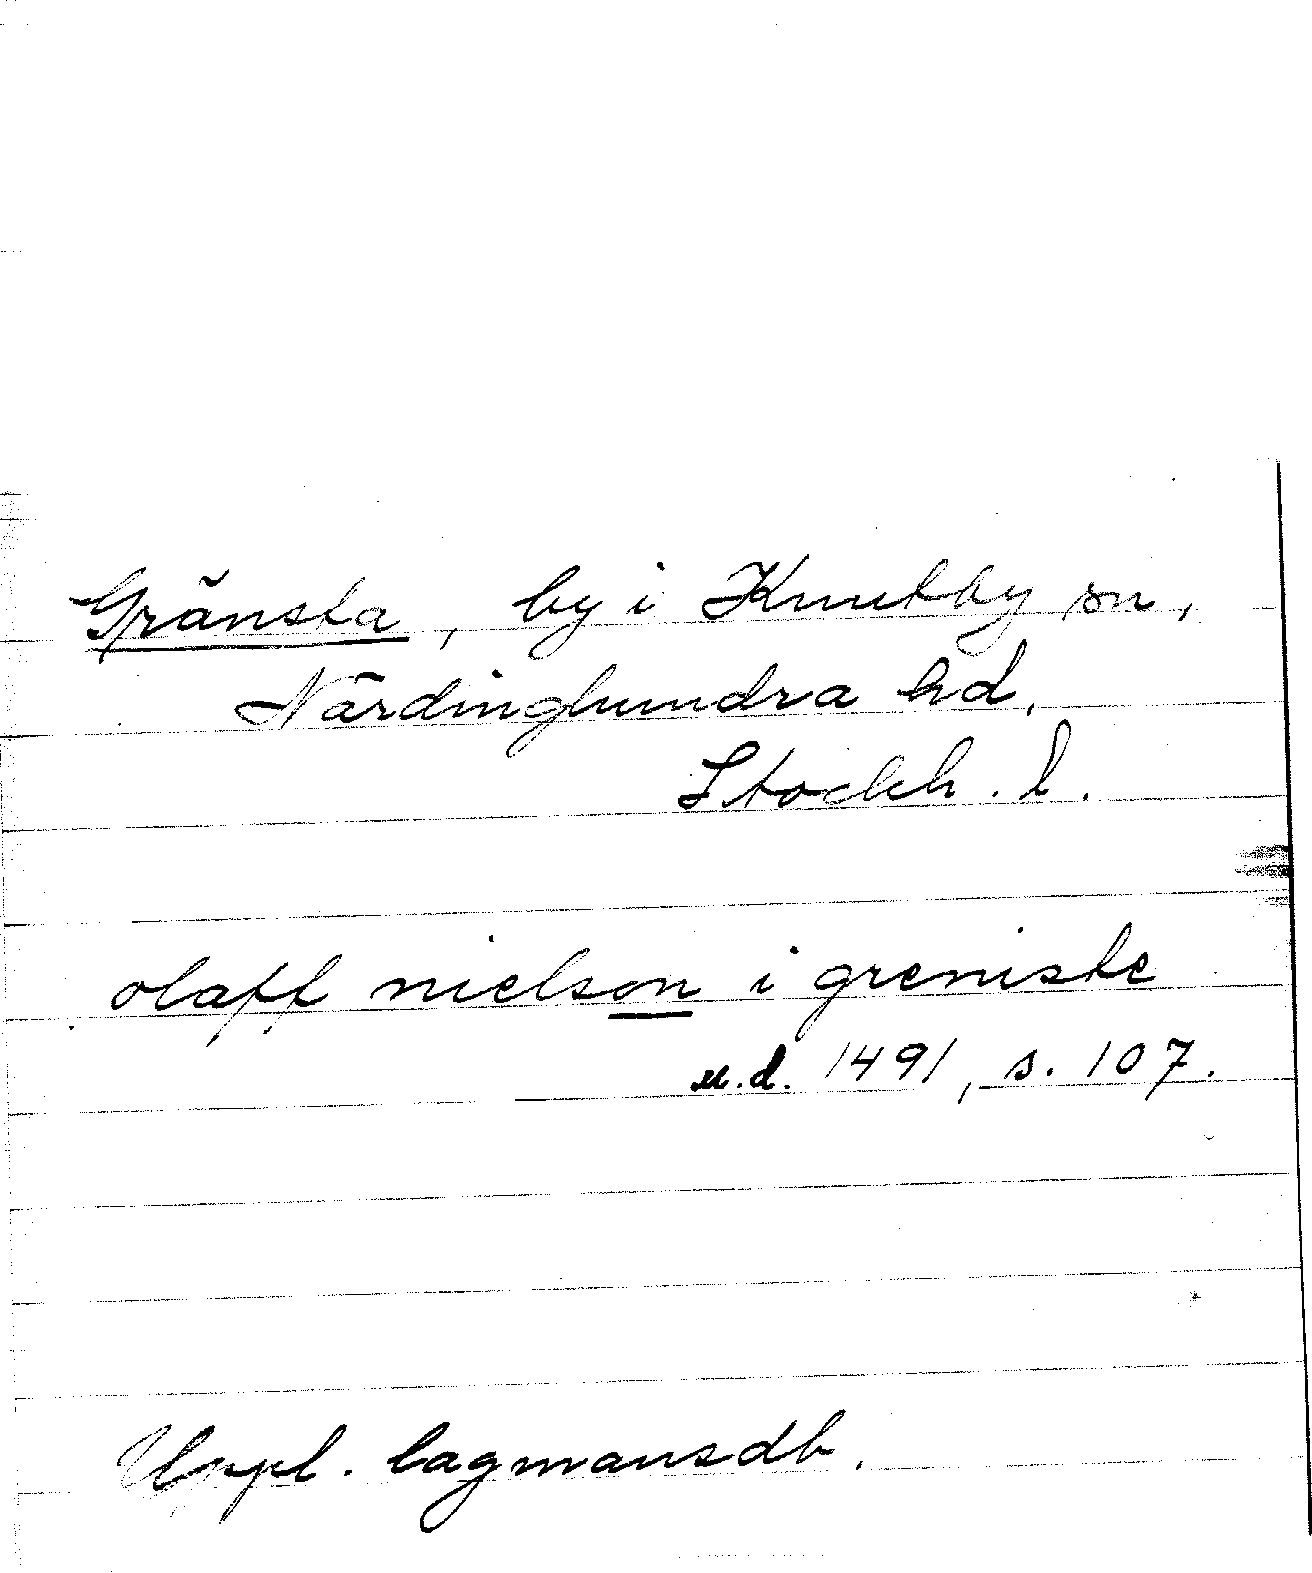 Gränsta, by i Knutby sn,
Närdinghundra hd,
Stockh. l.
olaff nielson i greniste
u.d. 1491, s. 107.
Uppl. lagmansdb.